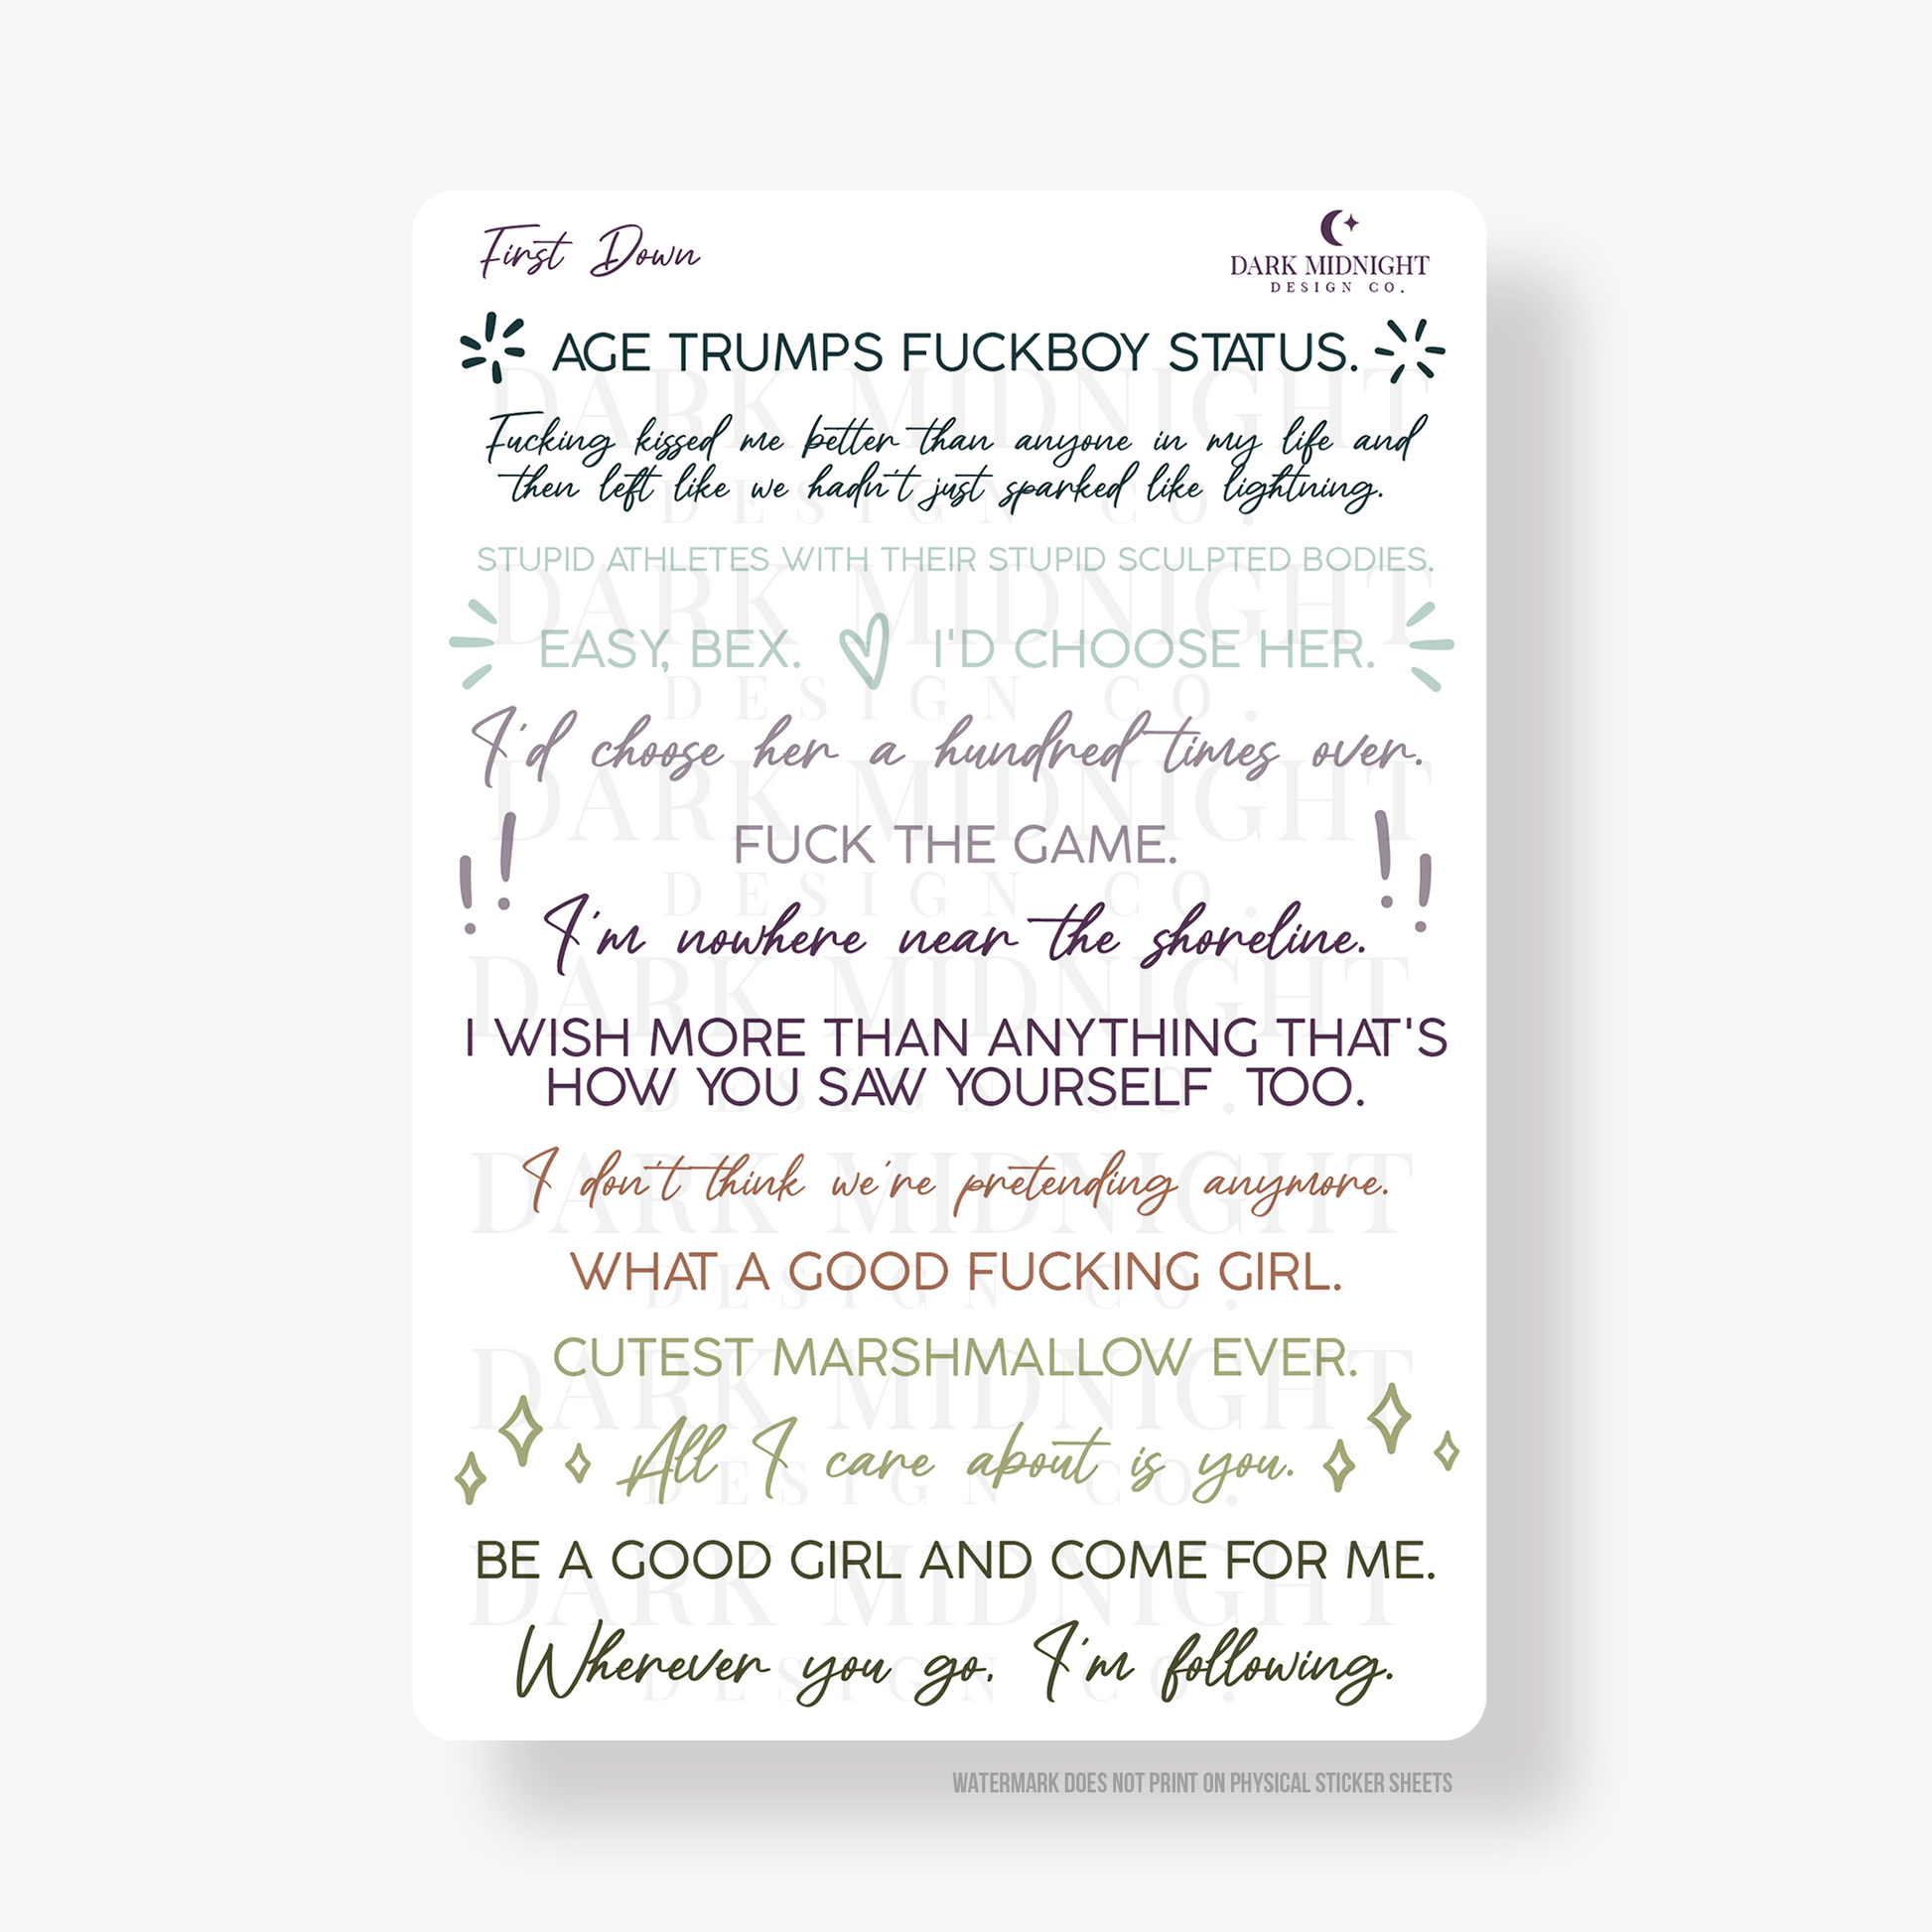 First Down
DARK MIDNIGHT
DESIGN CO.
AGE TRUMPS FUCKBOY STATUS.
Fucking kissed me better than anyone in my life and
then left like we hadn't just sparked like lightning.
STUPID ATHLETES WITH THEIR STUPID SCULPTED BODIES.
EASY, BEX. I'D CHOOSE HER.
I'd choose her a hundred times over.
FUCK THE GAME.
I'm nowhere near the shoreline.
I WISH MORE THAN ANYTHING THAT'S
HOW YOU SAW YOURSELF TOO.
I don't think we're pretending anymore.
WHAT A GOOD FUCKING GIRL.
CUTEST MARSHMALLOW EVER.
All I care about is you.
BE A GOOD GIRL AND COME FOR ME.
Wherever you go, I'm following.
WATERMARK DOES NOT PRINT ON PHYSICAL STICKER SHEETS
DARK MIDNIGHT
DESIGN CO.
DARK MIDNIGHT
DESIGN CO.
DARK MIDNIGHT
DESIGN CO.
DARK MIDNIGHT
DESIGN CO.
DARK MIDNIGHT
DESIGN CO.
DARK MIDNIGHT
DESIGN CO.
DARK MIDNIGHT
DESIGN CO.